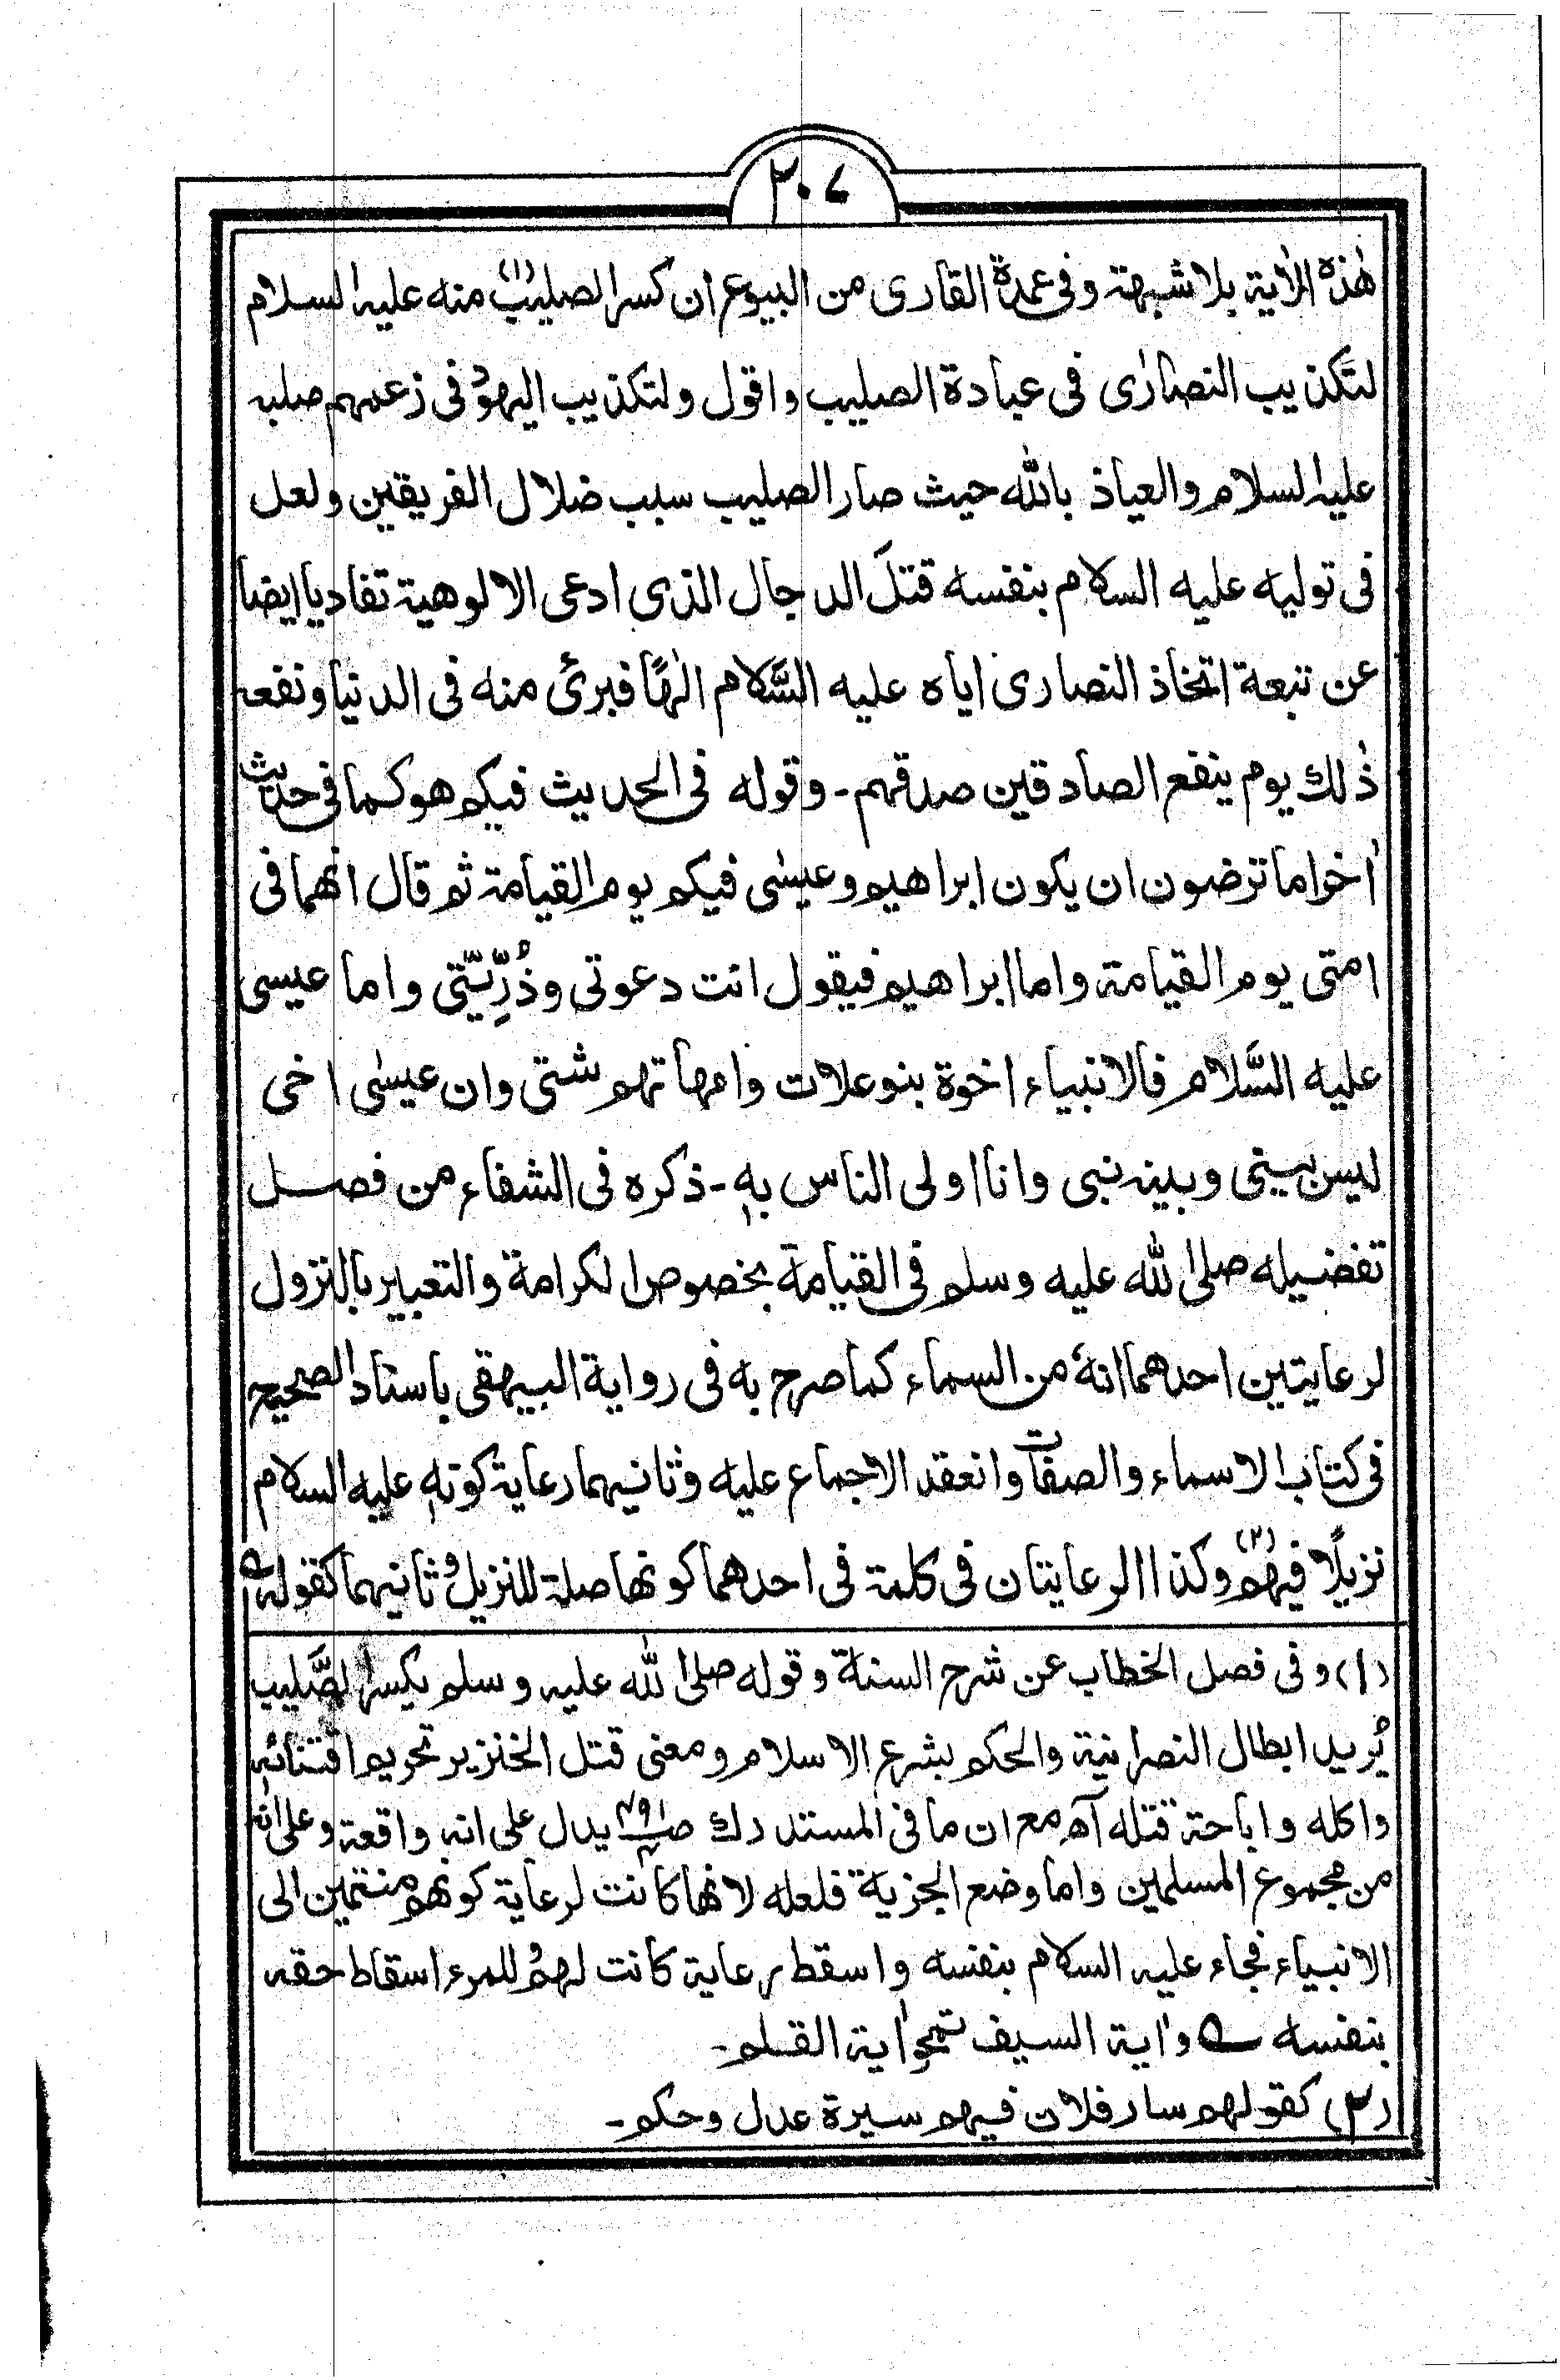 ٢٠٧
هٰذه الاٰية بلا شبهة وفى عمدة القارى من البيوع ان كسر الصليب (١) منه عليه السلام
لتكذيب النصارٰى فى عبادة الصليب واقول ولتكذيب اليهود فى زعمهم صلبه
عليه السلام والعياذ بالله حيث صار الصليب سبب ضلال الفريقين ولعل
فى توليه عليه السلام بنفسه قتلَ الدجال الذى ادعى الالوهية تفاديا ايضا
عن تبعة اتخاذ النصارى اياه عليه السَّلام الٰهًا فبرئ منه فى الدنيا ونفعه
ذٰلك يوم ينفع الصادقين صدقهم۔ وقوله فى الحديث فيكم هو كما فى حديث
اٰخر اما ترضون ان يكون ابراهيم وعيسٰى فيكم يوم القيامة ثم قال انهما فى
امتى يوم القيامة واما ابراهيم فيقول انت دعوتى وذُرِّيَّتى واما عيسى
عليه السَّلام فالانبياء اخوة بنو علات وامهاتهم شتى وان عيسٰى اخى
ليس بينى وبينه نبى وانا اولى الناس بهٖ۔ ذكره فى الشفاء من فصل
تفضيله صلى الله عليه وسلم فى القيامة بخصوص الكرامة والتعبير بالنزول
لرعايتين احدهما انهٗ من السماء كما صرح به فى رواية البيهقى باسناد الصحيح
فى كتاب الاسماء والصفات وانعقد الاجماع عليه وثانيهما رعاية كونهٖ عليه السلام
نزيلًا فيهم (٢) وكذا الرعايتان فى كلمة فى احدهما كونها صلة للنزيل وثانيهما كقوله ؎
(١) وفى فصل الخطاب عن شرح السنة وقوله صلى الله عليه وسلم يكسر الصَّليب
يُريد ابطال النصرانية والحكم بشرع الاسلام ومعنى قتل الخنزير تحريم اقتنائهٖ
واكله واباحة قتله آه مع ان ما فى المستدرك يدل على انه واقعة وعلى انه
من مجموع المسلمين واما وضع الجزية فلعله لانها كانت لرعاية كونهم منتمين الى
الانبياء فجاء عليه السلام بنفسه واسقط رعاية كانت لهم وللمرء اسقاط حقه
بنفسه ؎ واٰية السيف تمحو اٰية القلم۔
(٢) كقولهم سار فلان فيهم سيرة عدل وحكم۔